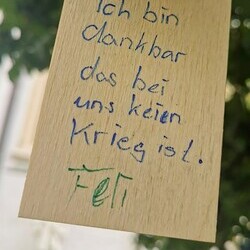 Ich bin
dankbar
das bei
uns keien
Krieg ist.
Feli